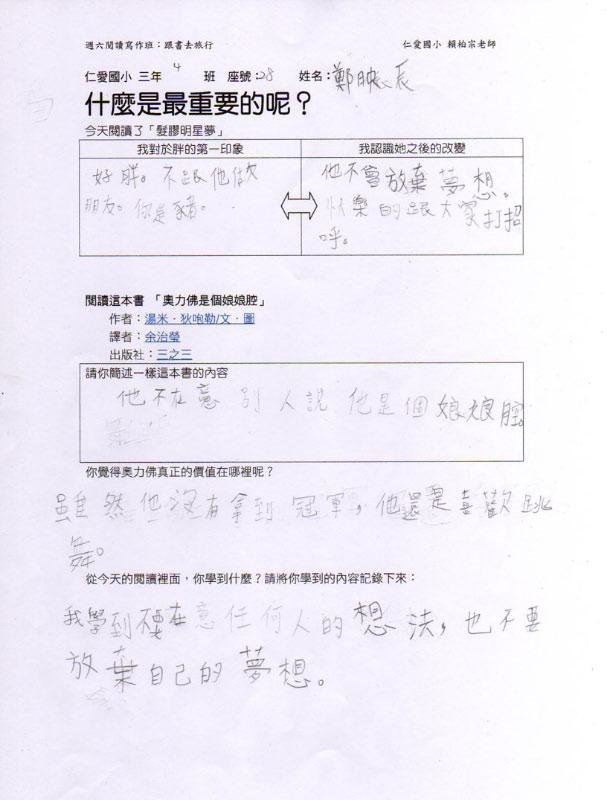 週六閱讀寫作班：跟書去旅行 仁愛國小 賴柏宗老師
仁愛國小 三年 4 班 座號：28 姓名：鄭映辰
什麼是最重要的呢？
今天閱讀了「髮膠明星夢」
我對於胖的第一印象 我認識她之後的改變
好胖。不跟他做
朋友。你是豬。
他不會放棄夢想。
快樂的跟大家打招
呼。
閱讀這本書 「奧力佛是個娘娘腔」
作者：湯米．狄咆勒/文．圖
譯者：余治瑩
出版社：三之三
請你簡述一樣這本書的內容
他不在意別人說他是個娘娘腔。
你覺得奧力佛真正的價值在哪裡呢？
雖然他沒有拿到冠軍，他還是喜歡跳
舞。
從今天的閱讀裡面，你學到什麼？請將你學到的內容記錄下來：
我學到不要在意任何人的想法，也不要
放棄自己的夢想。